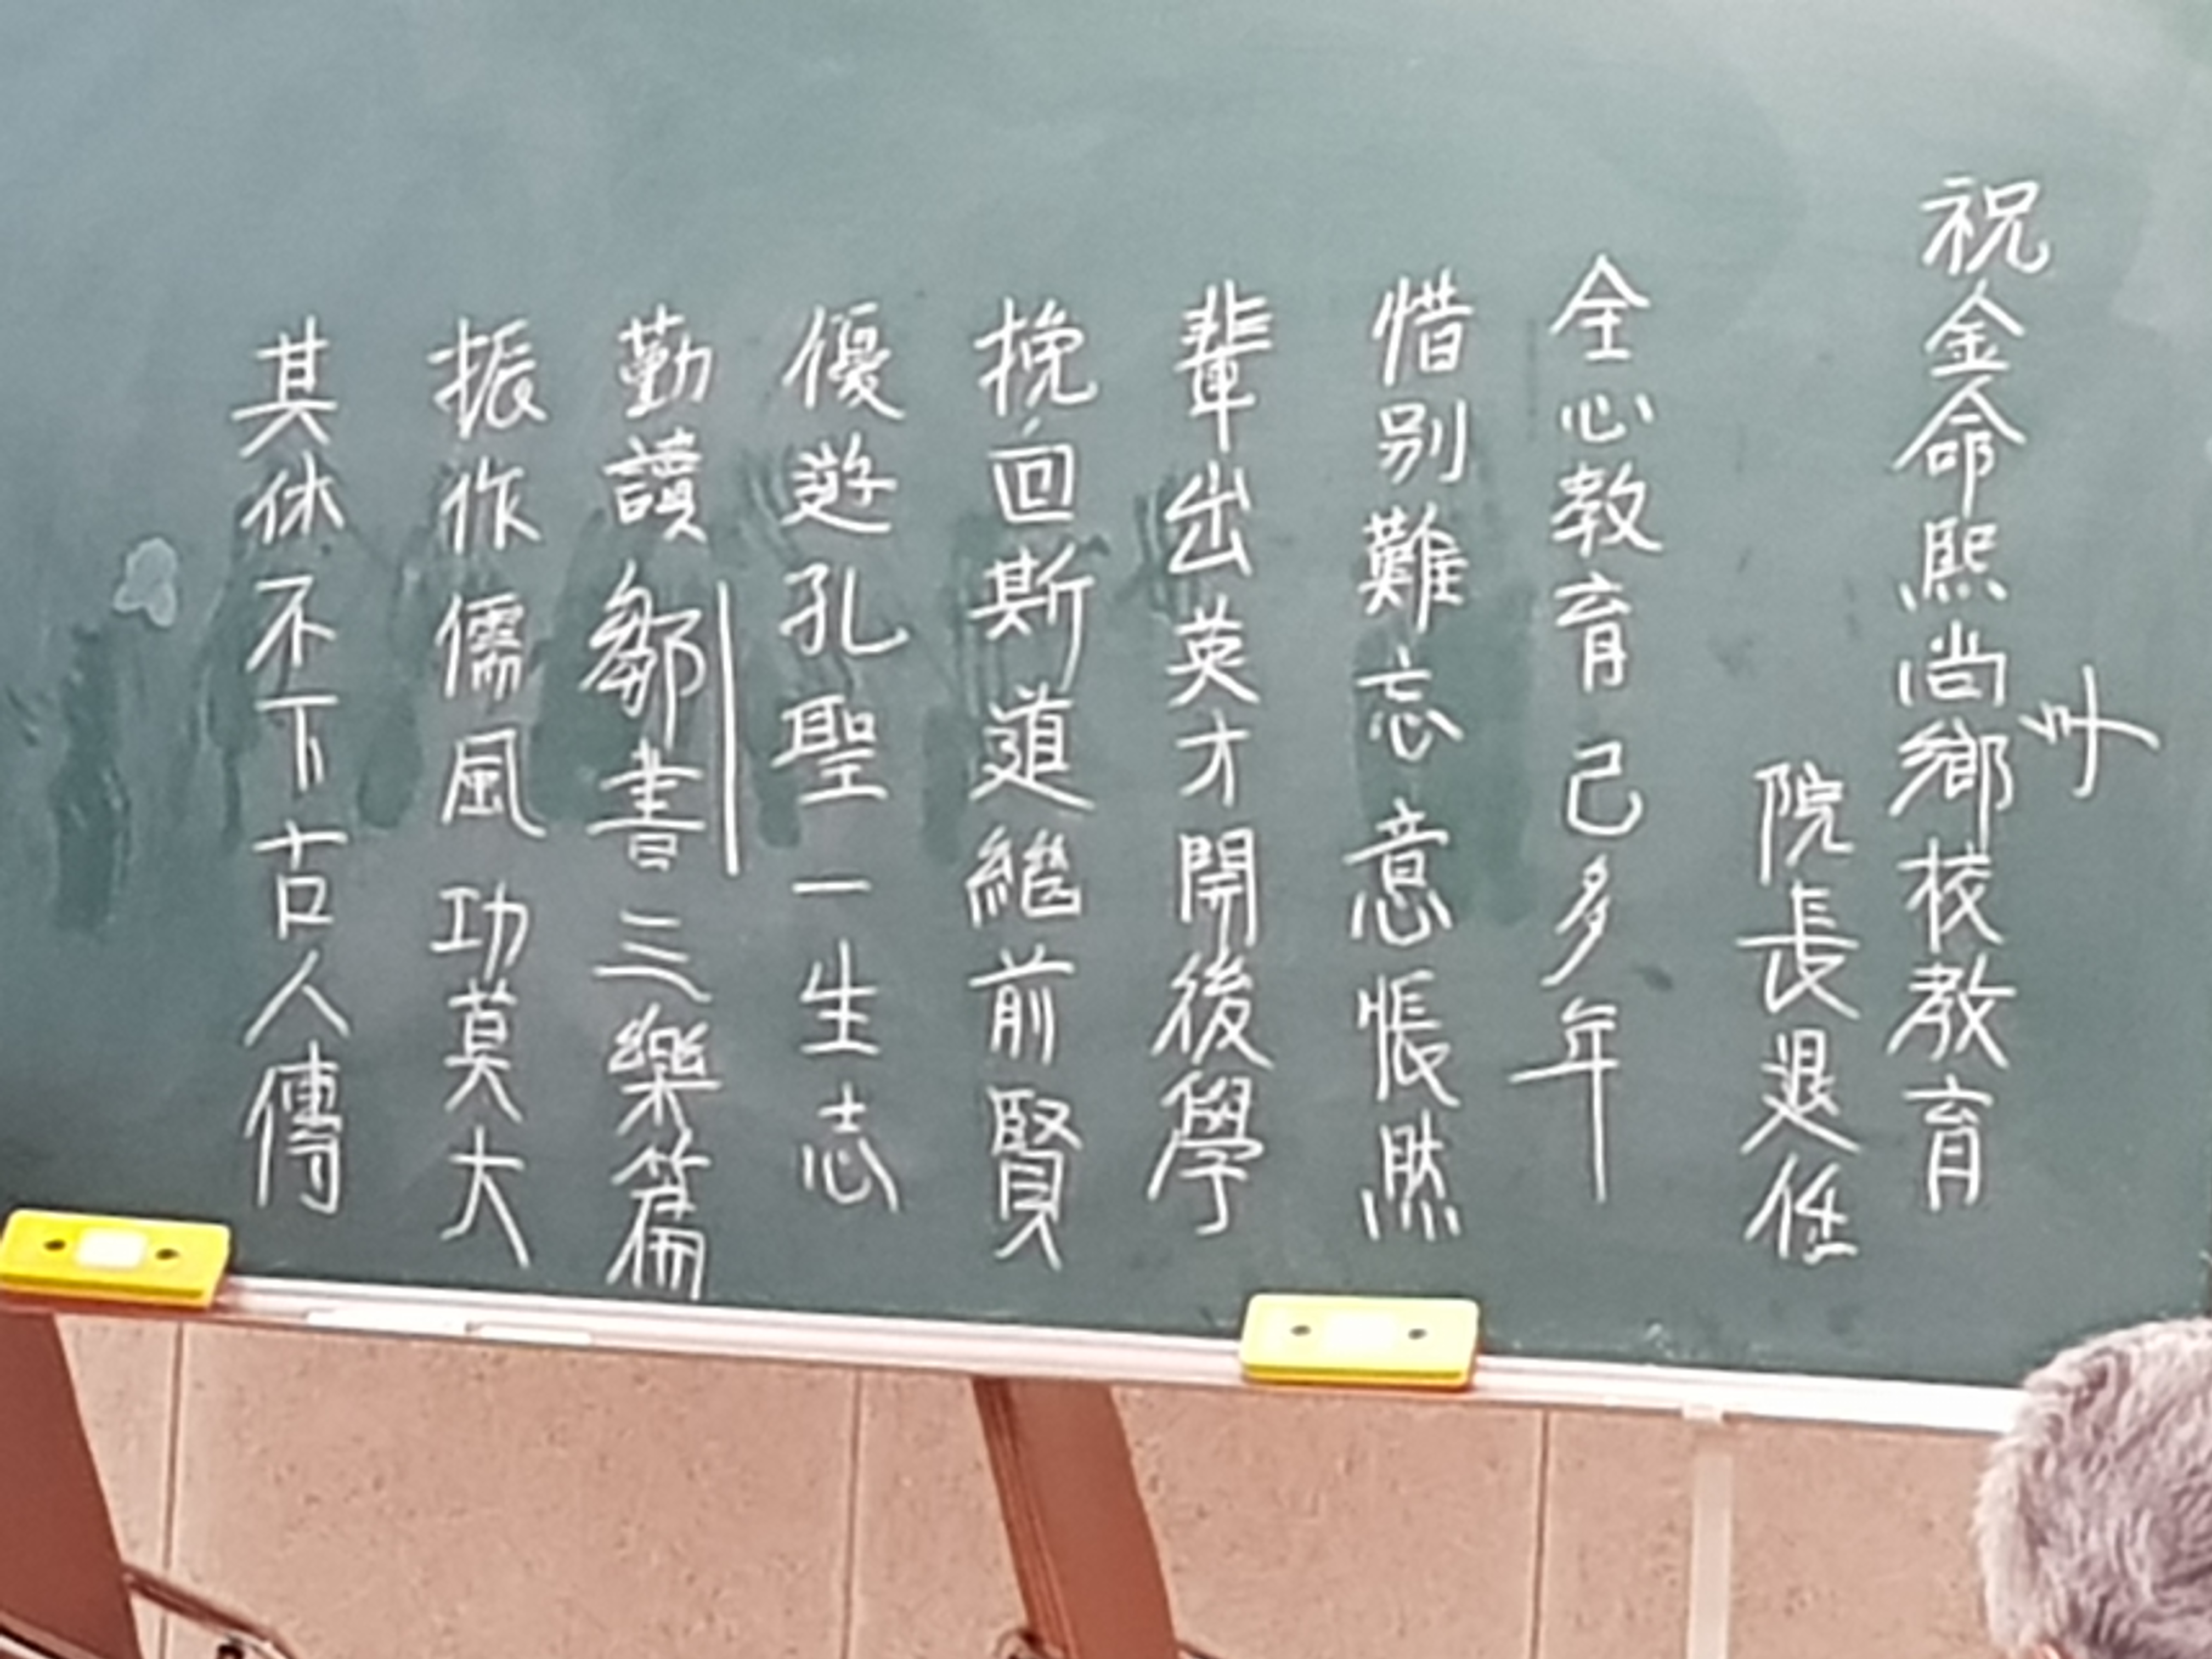 祝金命熙尚州鄉校教育
院長退任
全心教育己多年
惜別難忘意悵然
輩出英才開後學
挽回斯道繼前賢
優遊孔聖一生志
勤讀鄒書三樂篇
振作儒風功莫大
其休不下古人傳